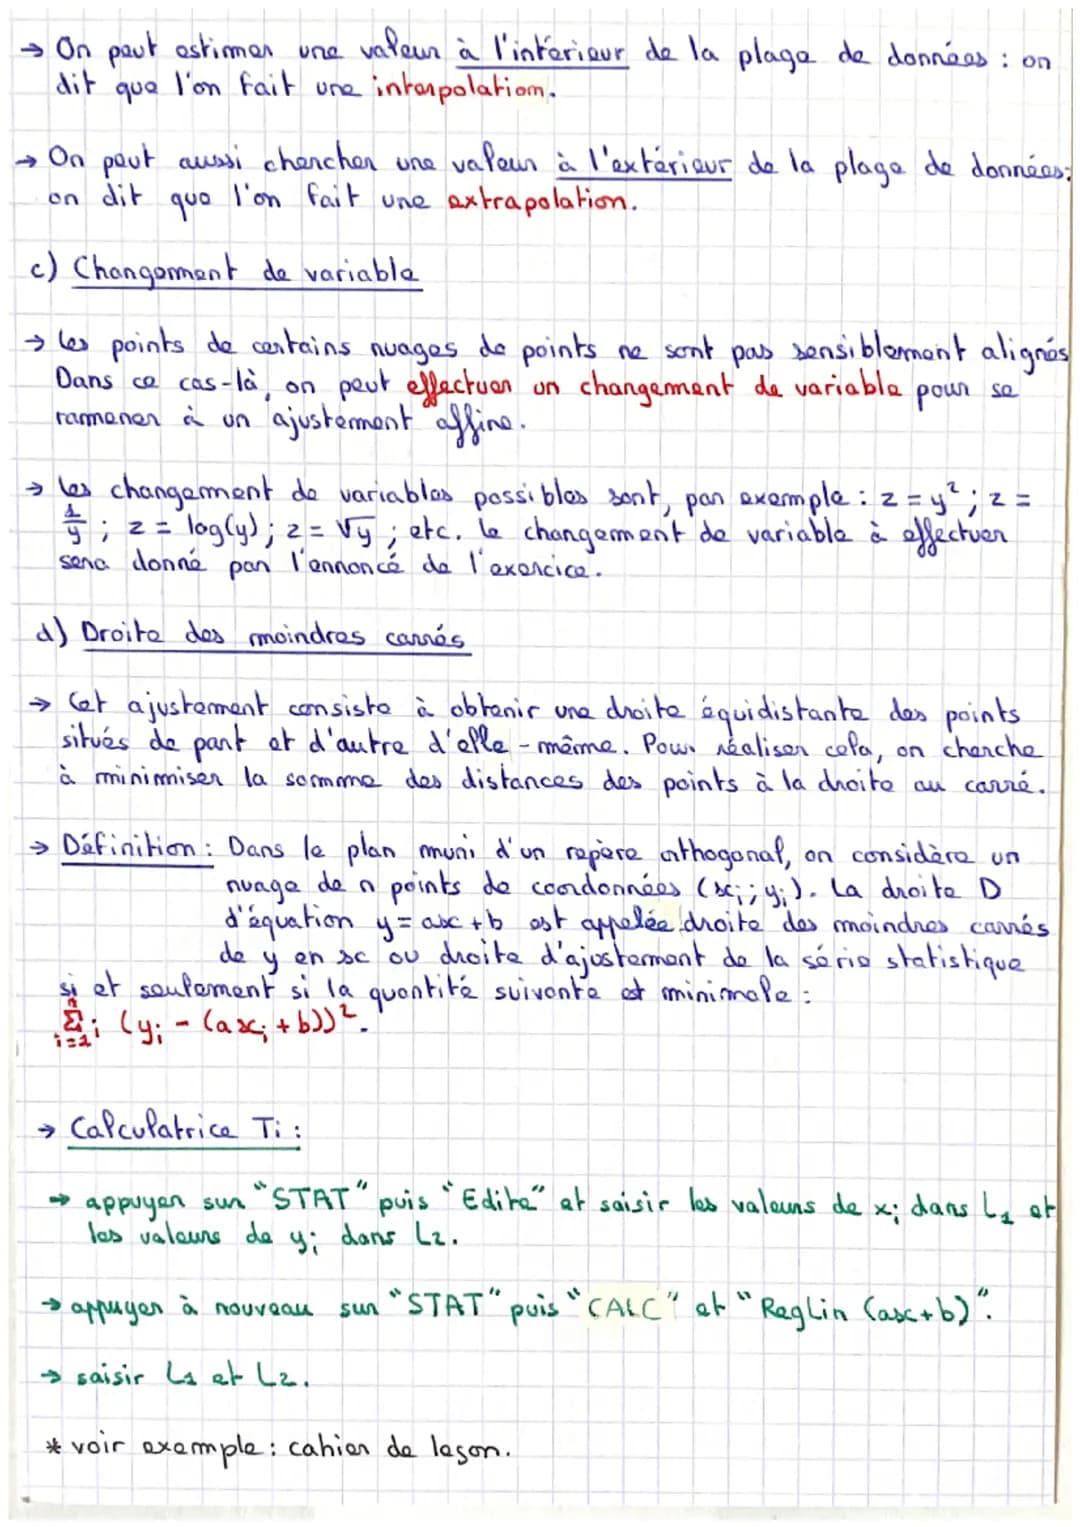 → On peut estimer une valeur à l'intérieur de la plage de données : on
dit que l'on fait une interpolation.
→ On peut aussi chercher une valeur à l'extérieur de la plage de données:
on dit que l'on fait une extrapolation.
c) Changement de variable
→ Les points de certains nuages de points ne sont pas sensiblement alignés
Dans ce cas-là, on peut effectuer un changement de variable pour se
ramener à un ajustement affine.
→ Les changement de variables possibles sont, par exemple : z = y² ; z =
1/y ; z = log(y) ; z = √y ; etc. Le changement de variable à effectuer
sera donné par l'ennoncé de l'exercice.
d) Droite des moindres carrés
→ Cet ajustement consiste à obtenir une droite équidistante des points
situés de part et d'autre d'elle-même. Pour réaliser cela, on cherche
à minimiser la somme des distances des points à la droite au carré.
→ Définition : Dans le plan muni d'un repère orthogonal, on considère un
nuage de n points de coordonnées (xi ; yi). La droite D
d'équation y = ax + b est appelée droite des moindres carrés
de y en x ou droite d'ajustement de la série statistique
si et seulement si la quantité suivante est minimale :
n Σ i=1 i (yi - (axi + b))².
→ Calculatrice Ti :
→ appuyer sur "STAT" puis "Edite" et saisir les valeurs de xi dans L1 et
les valeurs de yi dans L2.
→ appuyer à nouveau sur "STAT" puis "CALC" et "RegLin (ax+b)".
→ saisir L1 et L2.
* voir exemple : cahier de leçon.